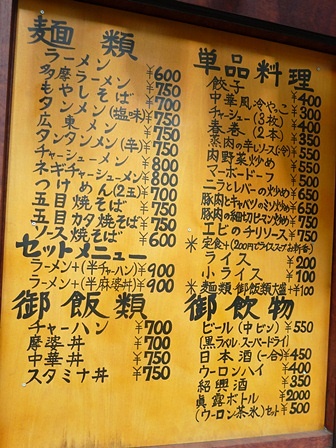 麺類
ラーメン ¥600
多摩ラーメン ¥750
もやしそば ¥700
タンメン(塩味) ¥750
広東メン ¥750
タンタンメン(辛) ¥750
チャーシューメン ¥800
ネギチャーシューメン ¥800
つけめん(2玉) ¥700
五目焼そば ¥750
五目カタ焼そば ¥750
ソース焼そば ¥600
セットメニュー
ラーメン+(半チャーハン) ¥900
ラーメン+(半麻婆丼)
御飯類
チャーハン ¥700
麻婆丼 ¥700
中華丼 ¥750
スタミナ丼 ¥750
単品料理
餃子 ¥400
中華風冷やっこ ¥300
チャーシュー(3枚) ¥400
春巻(2本) ¥350
蒸肉の辛しソース(冷) ¥550
肉野菜炒め ¥550
マーボードーフ ¥500
ニラとレバーの炒め ¥650
豚肉とキャベツのミソ炒め ¥650
豚肉の細切りピーマン炒め ¥750
エビのチリソース ¥750
※定食+(200円でライススープお新香)
ライス ¥200
小ライス ¥100
※麺類・御飯類大盛+¥100
御飲物
ビール(中ビン) ¥550
(黒ラベル・スーパードライ)
日本酒(一合) ¥450
ウーロンハイ ¥400
紹興酒 ¥350
眞露ボトル ¥2000
(ウーロン茶、氷)セット ¥500